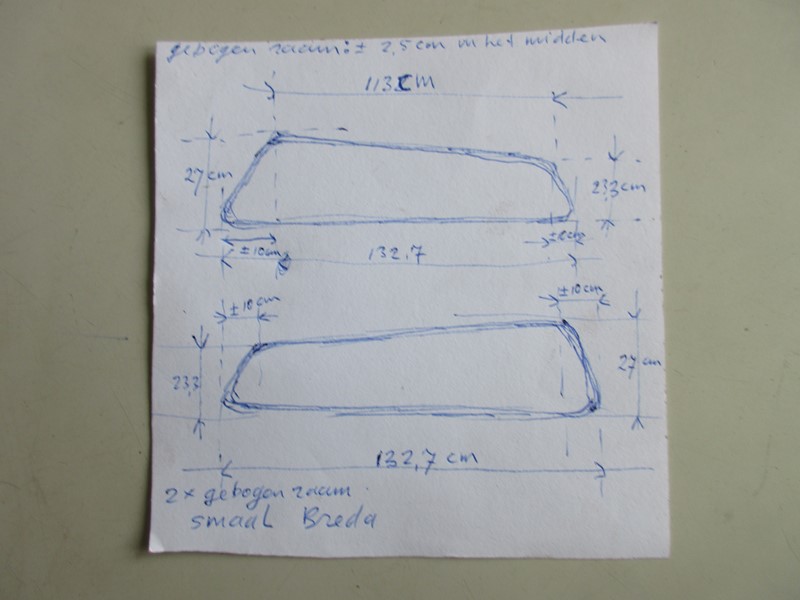 gebogen raam: ± 2,5 cm in het midden
113 cm
27 cm
23,3 cm
±10cm
±6cm
132,7
±10cm
±10cm
23,3
27 cm
132,7 cm
2x gebogen raam
smaal Breda